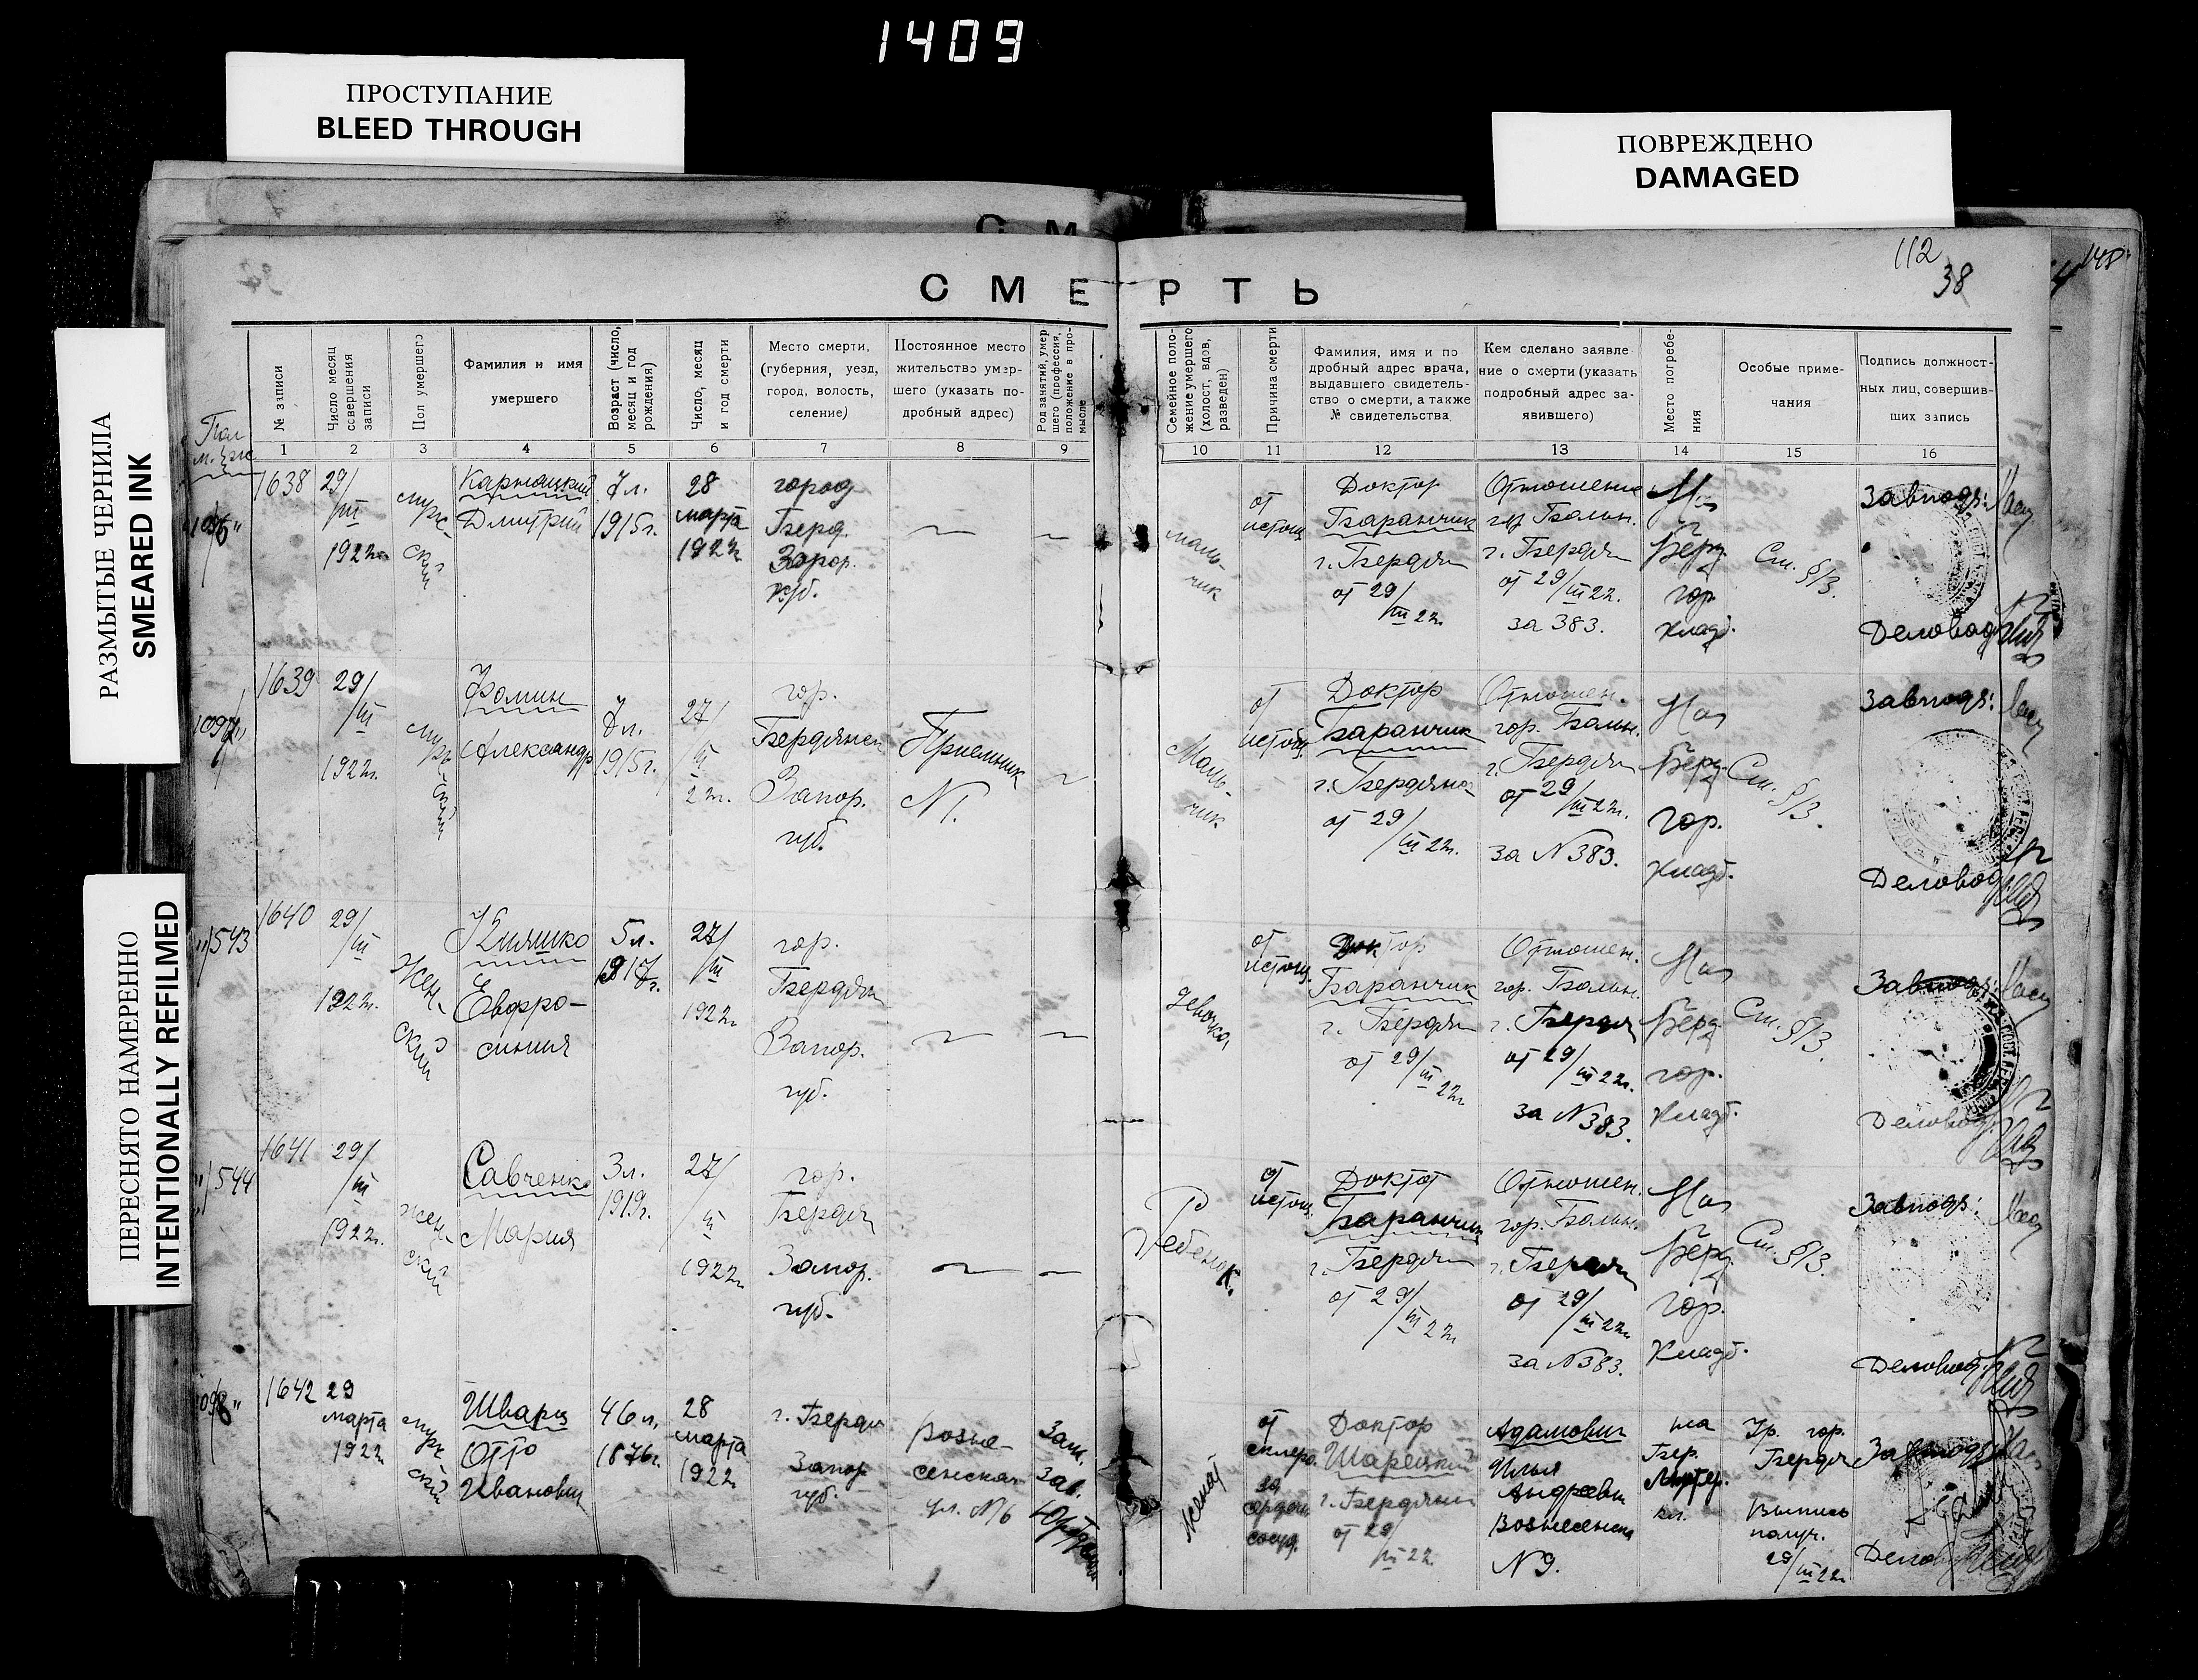 1409
ПРОСТУПАНИЕ
BLEED THROUGH
ПОВРЕЖДЕНО
DAMAGED
РАЗМЫТЫЕ ЧЕРНИЛА
SMEARED INK
ПЕРЕСНЯТО НАМЕРЕННО
INTENTIONALLY REFILMED
112
38
148
СМЕРТЬ
№ записи
Число месяц совершения записи
Пол умершего
Фамилия и имя
умершего
Возраст (число, месяц и год рождения)
Число, месяц и год смерти
Место смерти,
(губерния, уезд,
город, волость,
селение)
Постоянное место
жительство умер-
шего (указать по-
дробный адрес)
Род занятий, умер
шего (профессия,
положение в про-
мысле
Семейное поло-
жение умершего
(холост, вдов,
разведен)
Причина смерти
Фамилия, имя и по
дробный адрес врача,
выдавшего свидетель-
ство о смерти, а также
№ свидетельства
Кем сделано заявле
ние о смерти (указать
подробный адрес за-
явившего)
Место погребе-
ния
Особые приме-
чания
Подпись должност-
ных лиц, совершив-
ших запись
1 2 3 4 5 6 7 8 9 10 11 12 13 14 15 16
1638
29/III
1922г.
муж-
ский
Дмитрий
7л.
1915г.
28
марта
1922г
город
Берд.
Запор.
губ.
маль-
чик
от
истощ
Доктор
Баранчик
г. Бердян
от 29/III 22г.
Отношение
гор Больн.
г. Бердян
от 29/III 22г.
за 383.
На
Берд.
гор.
кладб.
См. §13.
Завподз:
Деловод
1639
29/III
1922г.
муж-
ский
Фомин
Александр
7л.
1915г.
27/III
22г.
гор.
Бердянск
Запор.
губ.
Приемник
N1.
Маль-
чик
от
истощ.
Доктор
Баранчик
г. Бердянс
от 29/III 22г.
Отношен.
гор. Больн.
г. Бердян
от 29/III 22г.
за N383.
На
Берд.
гор.
кладб.
См. §13.
Завподз:
Деловод
543
1640
29/III
1922г.
Жен-
ский
Кияшко
Евфро-
синия
5л.
1917г.
27/III
1922г
гор.
Бердян
Запор.
губ.
девочка
от
истощ.
Доктор
Баранчик
г. Бердян
от 29/III 22г
Отношен.
гор. Больн.
г. Бердян
от 29/III 22г.
за N383.
На
Берд.
гор.
кладб.
См. §13.
Завподз:
Деловод.
544
1641
29/III
1922г.
жен-
ский
Савченко
Мария
3л.
1919г.
27/III
1922г
гор.
Бердян
Запор.
губ.
Ребенок.
от
истощ
Доктор
Баранчик
г. Бердян
от 29/III 22г
Отношен.
гор. Больн.
г. Бердян
от 29/III 22г
за N383.
На
Берд.
гор.
кладб.
См. §13.
Завподз:
Деловод.
1642
29
марта
1922г
муж-
ский
Шварц
Отто
Иванович
46л.
1876г.
28
марта
1922г
г. Бердян
Запор
губ.
Возне-
сенская
ул. N6
Зам.
Зав.
женат
от
склеро.
сердеч
сосуд.
Доктор
Шарецкий
г. Бердянск
от 29/III 22.
Адамович
Илья
Андреевич
Вознесенск
N9.
на
Бер.
Лютер.
кл.
Гр. гор.
Бердян
Выпись
получ.
29/III 22г
Завподз
Деловод